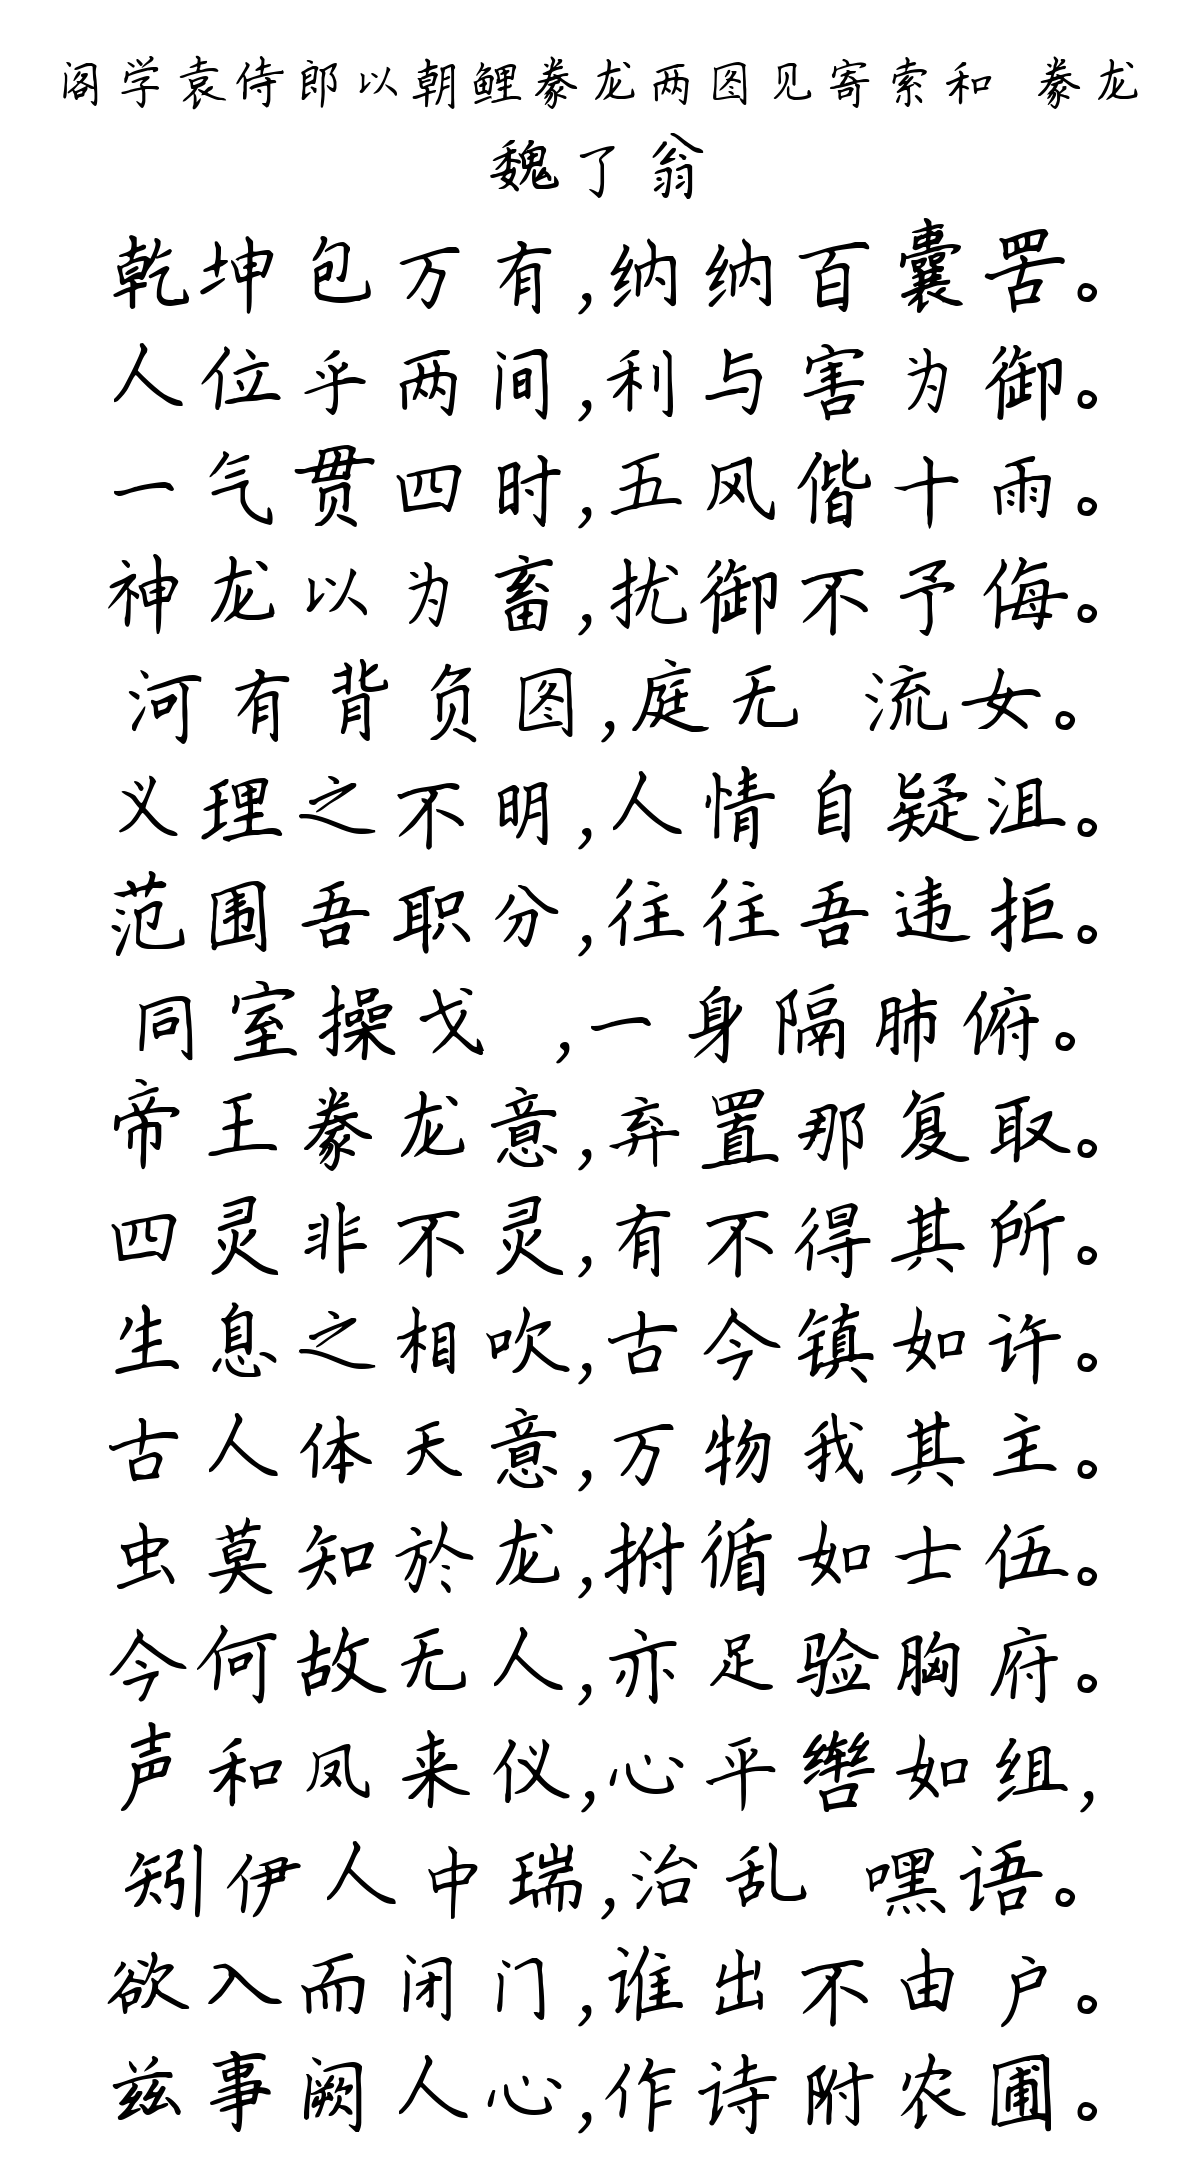 阁学袁侍郎以朝鲤豢龙两图见寄索和 豢龙
魏了翁
乾坤包万有,纳纳百囊罟。
人位乎两间,利与害为御。
一气贯四时,五风偕十雨。
神龙以为畜,扰御不予侮。
河有背负图,庭无 流女。
义理之不明,人情自疑沮。
范围吾职分,往往吾违拒。
同室操戈 ,一身隔肺俯。
帝王豢龙意,弃置那复取。
四灵非不灵,有不得其所。
生息之相吹,古今镇如许。
古人体天意,万物我其主。
虫莫知於龙,拊循如士伍。
今何故无人,亦足验胸府。
声和凤来仪,心平辔如组,
矧伊人中瑞,治乱 嘿语。
欲入而闭门,谁出不由户。
兹事阙人心,作诗附农圃。